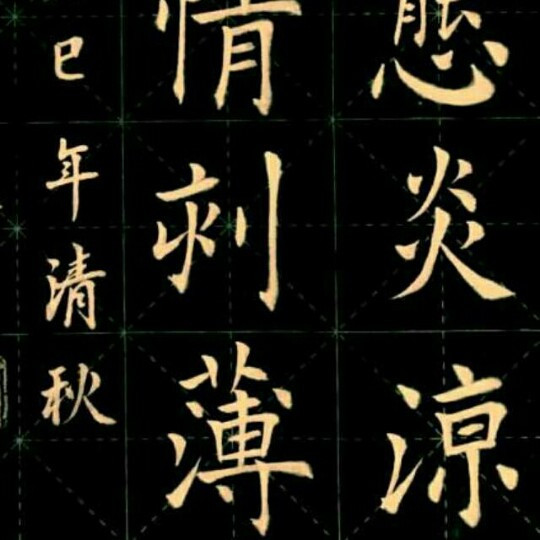 態炎涼
情刻薄
巳年清秋